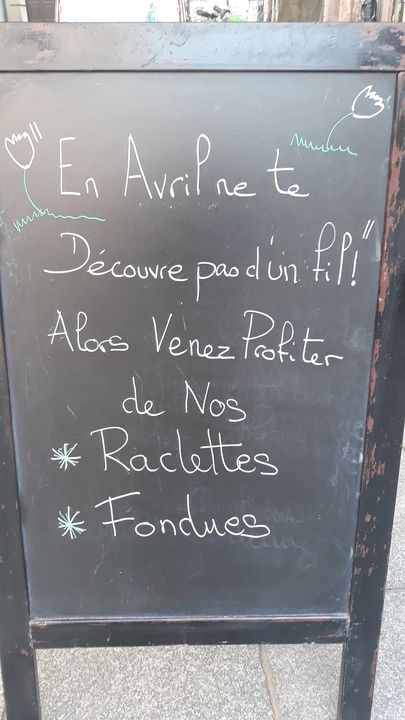 "En Avril ne te
Découvre pas d'un fil!"
Alors Venez Profiter
de Nos
* Raclettes
* Fondues